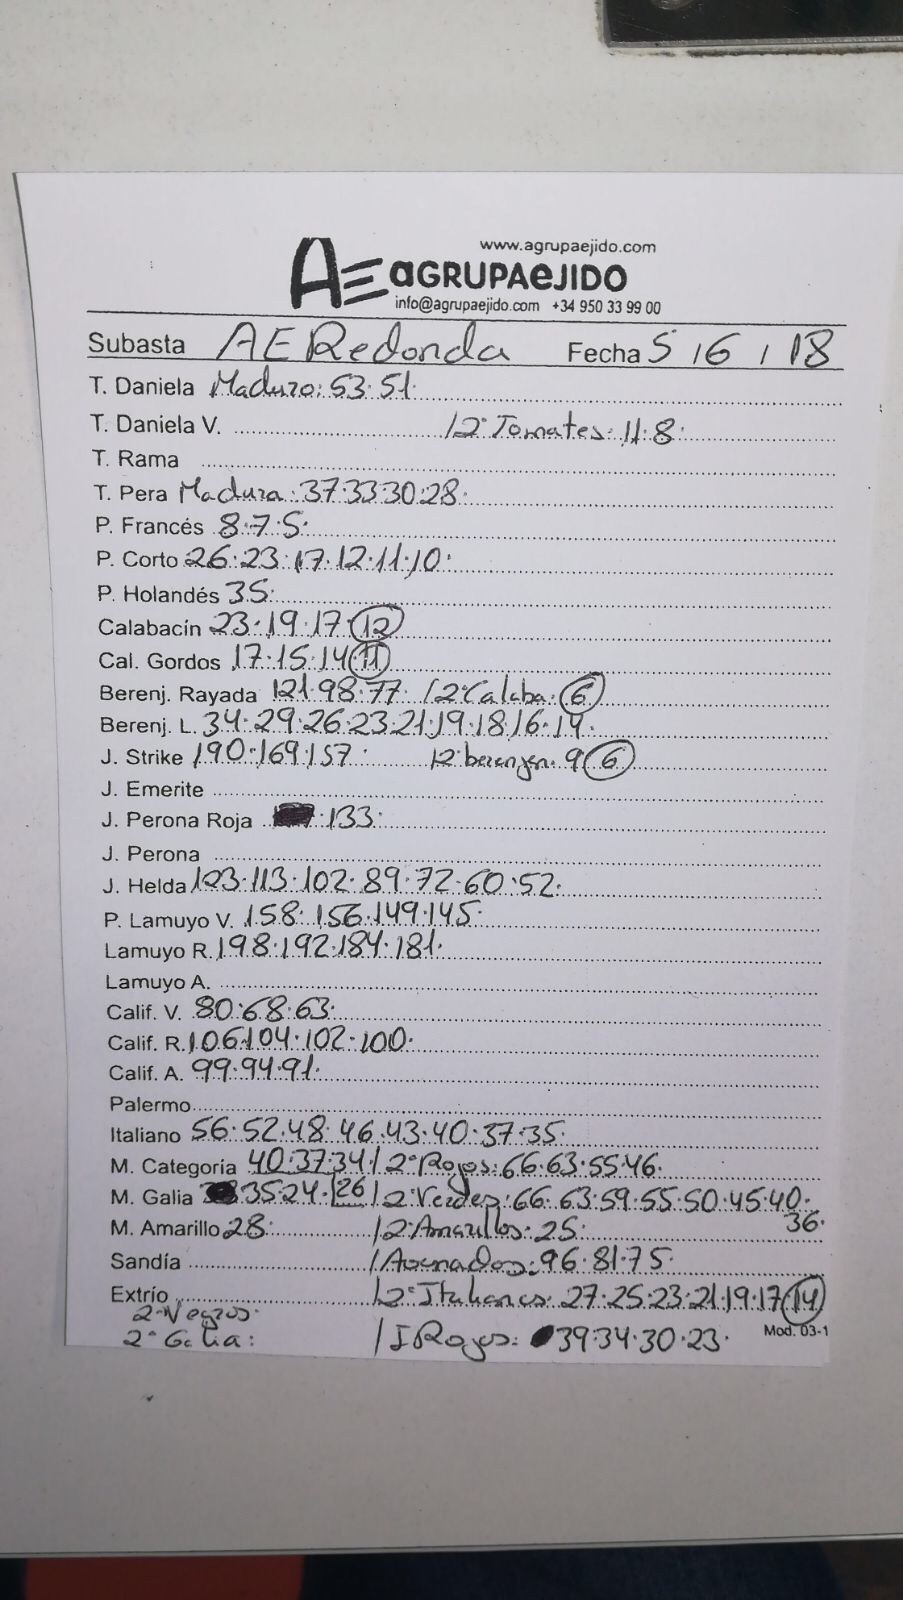 www.agrupaejido.com
AE aGRUPAeJIDO
info@agrupaejido.com +34 950 33 99 00
Subasta AE Redonda Fecha 5 / 6 / 18
T. Daniela Maduro: 53·51·
T. Daniela V. /2ª Tomates· 11·8·
T. Rama
T. Pera Madura: 37·33·30·28·
P. Francés 8·7·5·
P. Corto 26·23·17·12·11·10·
P. Holandés 35·
Calabacín 23·19·17·12
Cal. Gordos 17·15·14·11
Berenj. Rayada 121·98·77· /2ª Calaba· 6
Berenj. L. 34·29·26·23·21·19·18·16·14·
J. Strike 190·169·157· /2 berenjen· 9 6
J. Emerite
J. Perona Roja 133·
J. Perona
J. Helda 123·113·102·89·72·60·52·
P. Lamuyo V. 158·156·149·145·
Lamuyo R. 198·192·184·181·
Lamuyo A.
Calif. V. 80·68·63·
Calif. R. 106·104·102·100·
Calif. A. 99·94·91·
Palermo
Italiano 56·52·48·46·43·40·37·35·
M. Categoría 40·37·34 / 2ª Rojos: 66·63·55·46·
M. Galia 35·24·26 / 2 Verdes: 66·63·59·55·50·45·40·
36·
M. Amarillo 28· /2ª Amarillos: 25·
Sandía / Asurnados: 96·81·75·
Extrío /2ª Italianos: 27·25·23·21·19·17·14
2ª Negros·
2ª Galia: / I Rojos: 39·34·30·23· Mod. 03-1